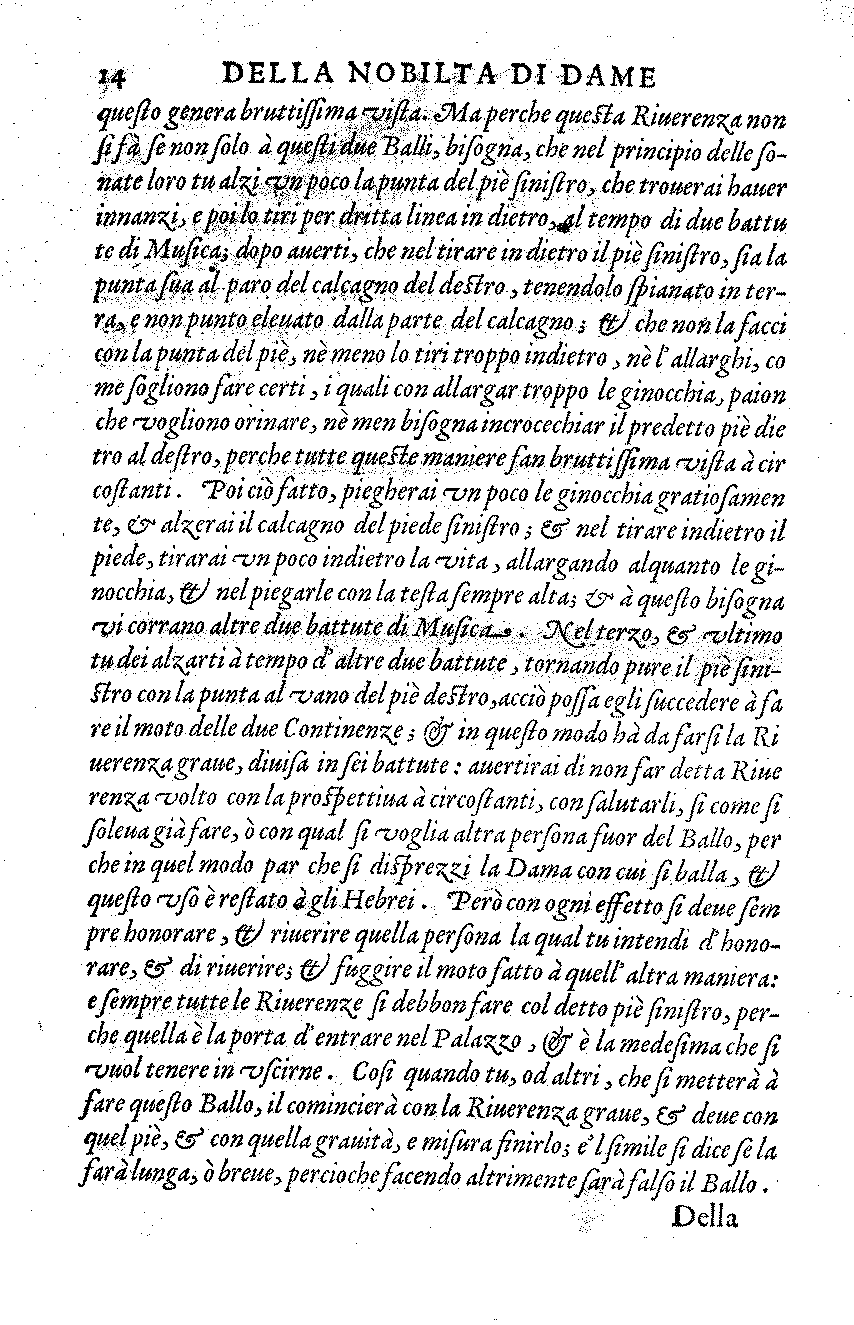 14 DELLA NOBILTA DI DAME
queſto genera bruttiſſima viſta. Ma perche queſta Riuerenza non
ſi fà ſe non ſolo à queſti due Balli, biſogna, che nel principio delle ſo-
nate loro tu alzi vn poco la punta del piè ſiniſtro, che trouerai hauer
innanzi, e poi lo tiri per dritta linea in dietro, al tempo di due battu
te di Muſica; dopo auerti, che nel tirare in dietro il piè ſiniſtro, ſia la
punta ſua al paro del calcagno del deſtro, tenendolo ſpianato in ter-
ra, e non punto eleuato dalla parte del calcagno; & che non la facci
con la punta del piè, nè meno lo tiri troppo indietro, nè l'allarghi, co
me ſogliono fare certi, i quali con allargar troppo le ginocchia, paion
che vogliono orinare, nè men biſogna incrocechiar il predetto piè die
tro al deſtro, perche tutte queſte maniere fan bruttiſſima viſta à cir
coſtanti. Poi ciò fatto, piegherai vn poco le ginocchia gratioſamen
te, & alzerai il calcagno del piede ſiniſtro; & nel tirare indietro il
piede, tirarai vn poco indietro la vita, allargando alquanto le gi-
nocchia, & nel piegarle con la teſta ſempre alta; & à queſto biſogna
vi corrano altre due battute di Muſica. Nel terzo, & vltimo
tu dei alzarti à tempo d'altre due battute, tornando pure il piè ſini-
ſtro con la punta al vano del piè deſtro, acciò poſſa egli ſuccedere à fa
re il moto delle due Continenze; & in queſto modo hà da farſi la Ri
uerenza graue, diuiſa in ſei battute: auertirai di non far detta Riue
renza volto con la proſpettiua à circoſtanti, con ſalutarli, ſi come ſi
ſoleua già fare, ò con qual ſi voglia altra perſona fuor del Ballo, per
che in quel modo par che ſi diſprezzi la Dama con cui ſi balla, &
queſto vſo è reſtato à gli Hebrei. Però con ogni effetto ſi deue ſem
pre honorare, & riuerire quella perſona la qual tu intendi d'hono-
rare, & di riuerire; & fuggire il moto fatto à quell'altra maniera:
e ſempre tutte le Riuerenze ſi debbon fare col detto piè ſiniſtro, per-
che quella è la porta d'entrare nel Palazzo, & è la medeſima che ſi
vuol tenere in vſcirne. Coſi quando tu, od altri, che ſi metterà à
fare queſto Ballo, il comincierà con la Riuerenza graue, & deue con
quel piè, & con quella grauità, e miſura finirlo; e'l ſimile ſi dice ſe la
farà lunga, ò breue, percioche facendo altrimente ſarà falſo il Ballo.
Della